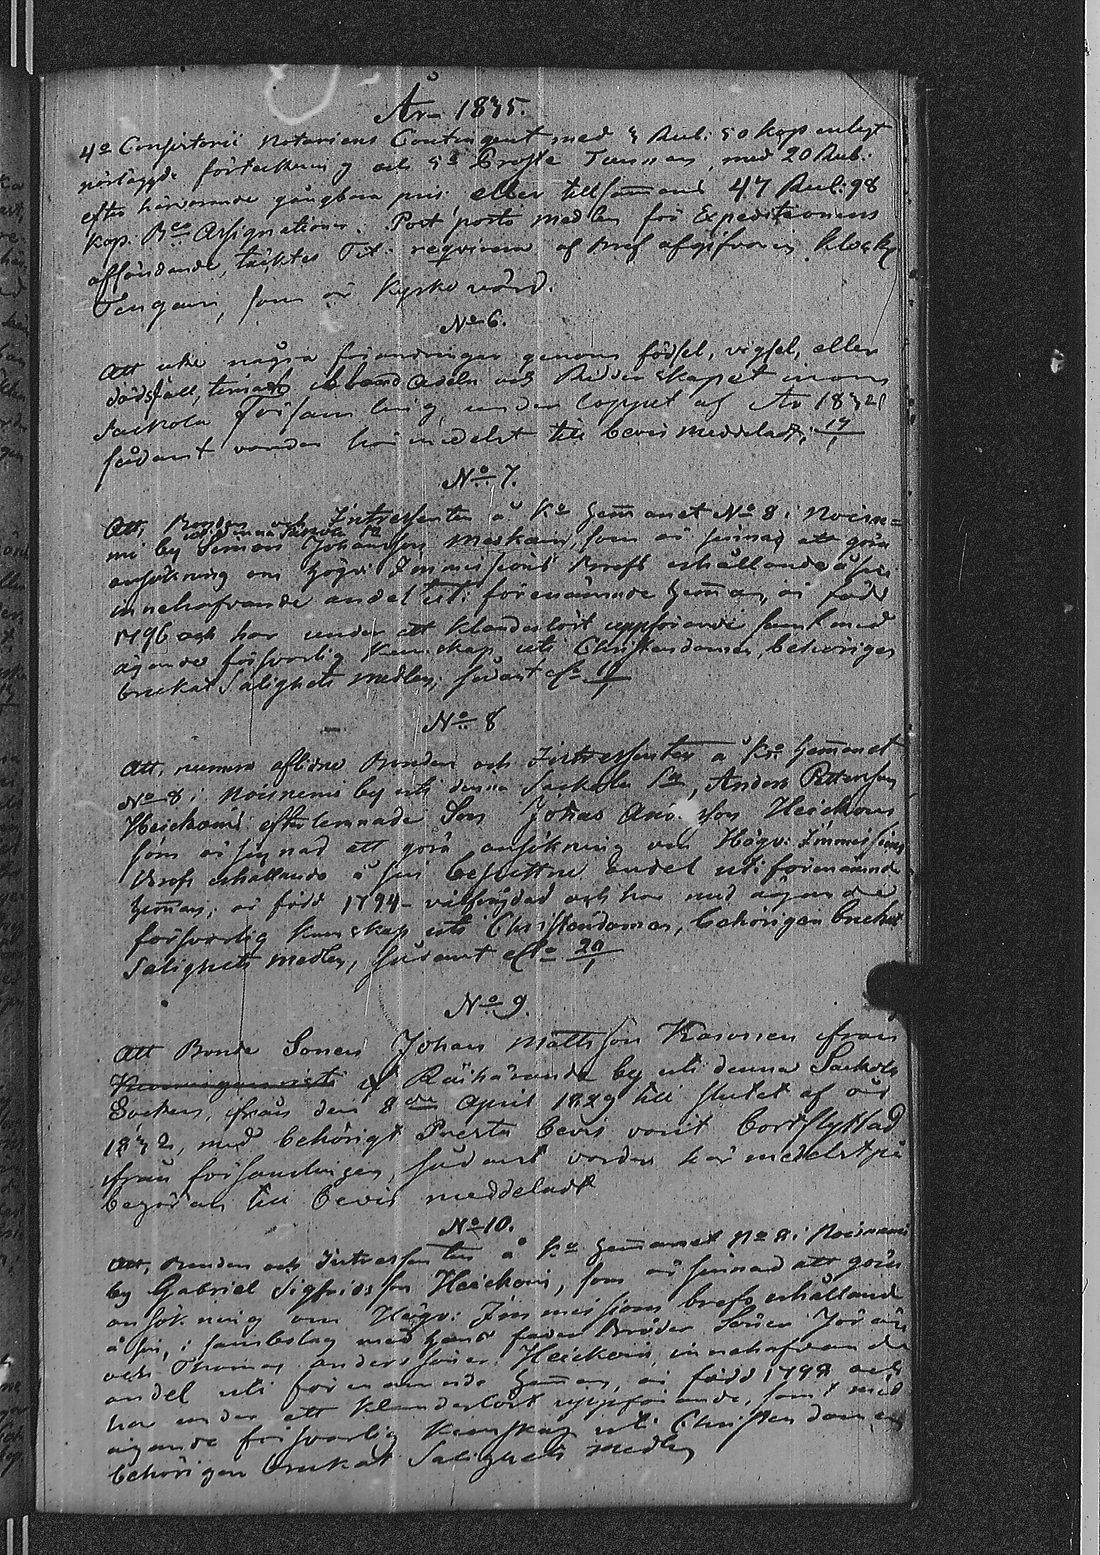 År 1835.
4o Consistorii Notariens Contingent med 3 Rub: 50 kop enligt
förteckning och 5o Tunnan, med 20 Rub:
efter härvarande gångbara pris eller tillsammans 47 Rub: 98
kop. Bco Assignationer. Post porto medlen för Expeditionens
affärdande, täcktes Tit: requirera af Bref afgifvaren Klockz
Tengen, som är Kyrkovärd.
No 6.
Att icke några förändringar genom födsel, vigsel, eller
dödsfall, timat ibland Adeln och Ridderskapet inom
Sackola Församling under loppet af År 1834
sådant varder härmedelst till bevis meddeladt; 17/1
No 7.
Att, Bonden och Intressenten å Ko Hemmanet No 8 i Noisnie-
mi by uti denna Sackola Sn Simon Johansson, som är sinnad att göra
ansökning om Högv: Immissions Brefs erhållande å sin
innehafvande andel uti förenämnde Hemman, är född
1796 och har under ett klanderlöst uppförande samt med
ägande försvarlig kunskap uti Christendomen, behörigen
brukat Salighets medlen; sådant
No 8
Att, numera aflidne Bonden och Intressenten å Kr: Hemmanet
No 8 i Noisniemi by uti denna Sackola Sn, Anders Pettersson
Heickoins efterlemnade Son Johas Andersson Heickoin
som är sinnad att göra ansökning om Högv: Immissions
Brefs erhållande å sin besuttne andel uti förenämnde
Hemman; är född 1794 välfrejdad och har med ägande
försvarlig kunskap uti Christendomen, behörigen brukat
Salighets medlen, sådant 20/1
No 9.
Att Bonde Sonen Johan Mattsson Kasonen från
Räihäranda by uti denna Sackola
Socken, ifrån den 8de April 1829 till slutet af år
1832, med behörigt Presta bevis varit bortflyttad
ifrån församlingen sådant varder härmedelst på
begäran till bevis meddeladt
No 10.
Att, Bonden och Intressenten å Ko Hemmanet No 8 i Noisniemi
by Gabriel Sigfridsson Heickoin, som är sinnad att göra
ansökning om Högv: Immissions brefs erhållande
å sin, i sambolag med hans fader Broder Söner Jöran
och Thomas Anders söner Heickoin innehafvande
andel uti förenämnde Hemman, är född 1798 och
har under ett klanderlöst uppförande, samt med
ägande försvarlig kunskap uti Christendomen
behörigen brukat Salighets medlen